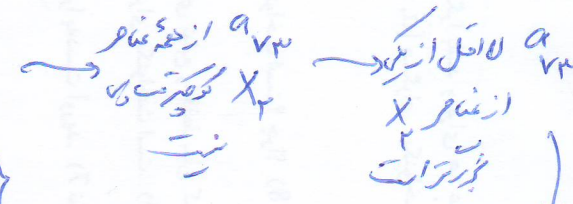 a_۷۳ لااقل از یکی
از عناصر X_۳
بزرگتر است
a_۷۳ از همهٔ عناصر
X_۳ کوچکتر
نیست